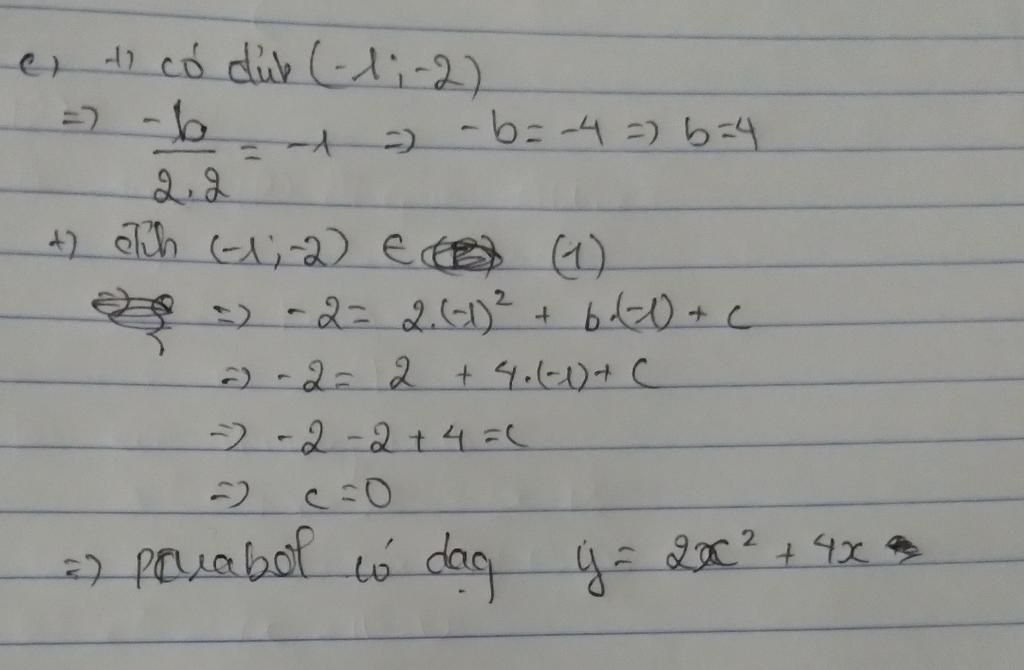 c, +) có đỉnh (-1; -2)
=> \frac{-b}{2.2} = -1 => -b = -4 => b=4
+) đỉnh (-1; -2) ∈ (1)
=> -2 = 2.(-1)² + b.(-1) + c
=> -2 = 2 + 4.(-1) + c
=> -2 - 2 + 4 = c
=> c = 0
=> parabol có dạg y = 2x² + 4x